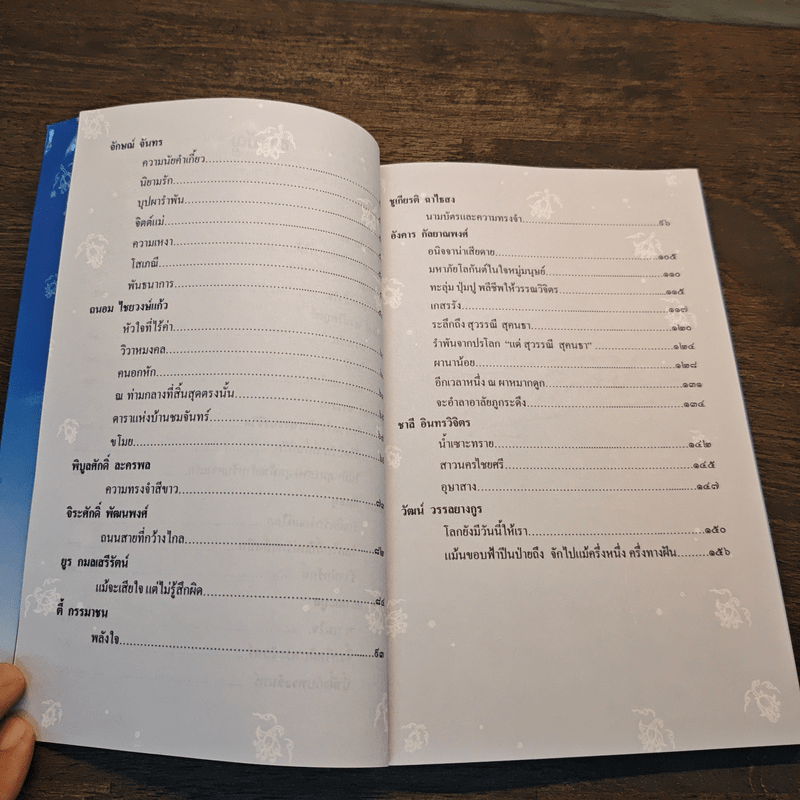 จักษณ์ จันทร
ความนัยคำเกี้ยว
นิยามรัก
บุปผารำพัน
จิตต์แม่
ความเหงา
โสเภณี
พันธนาการ
ถนอม ไชยวงษ์แก้ว
หัวใจที่ไร้ค่า
วิวาหมงคล
คนอกหัก
ณ ท่ามกลางที่สิ้นสุดตรงนั้น
ดาราแห่งบ้านชมจันทร์
ขโมย
พิบูลศักดิ์ ละครพล
ความทรงจำสีขาว
จิระศักดิ์ พัฒนพงศ์
ถนนสายที่กว้างไกล
ยูร กมลเสรีรัตน์
แม้จะเสียใจ แต่ไม่รู้สึกผิด
ตี้ กรรมาชน
พลังใจ
ชูเกียรติ ฉาไธสง
นามบัตรและความทรงจำ
อังคาร กัลยาณพงศ์
อนิจจาน่าเสียดาย ๑๐๕
มหาภัยโลกันต์ในใจหมู่มนุษย์ ๑๑๐
ทะลุ่ม ปุ่มปู พลีชีพให้วรรณวิจิตร ๑๑๕
เกสรรัง ๑๑๗
ระลึกถึง สุวรรณี สุคนธา ๑๒๐
รำพันจากปรโลก “แด่ สุวรรณี สุคนธา” ๑๒๔
ผานาน้อย ๑๒๘
อีกเวลาหนึ่ง ณ ผาหมากดูก ๑๓๑
จะอำลาอาลัยภูกระดึง ๑๓๔
ชาลี อินทรวิจิตร
น้ำเซาะทราย ๑๔๒
สาวนครไชยศรี ๑๔๕
อุษาสาง ๑๔๗
วัฒน์ วรรลยางกูร
โลกยังมีวันนี้ให้เรา ๑๕๐
แม้นขอบฟ้าปีนป่ายถึง จักไปแม้ครึ่งหนึ่ง ครึ่งทางฝัน ๑๕๖